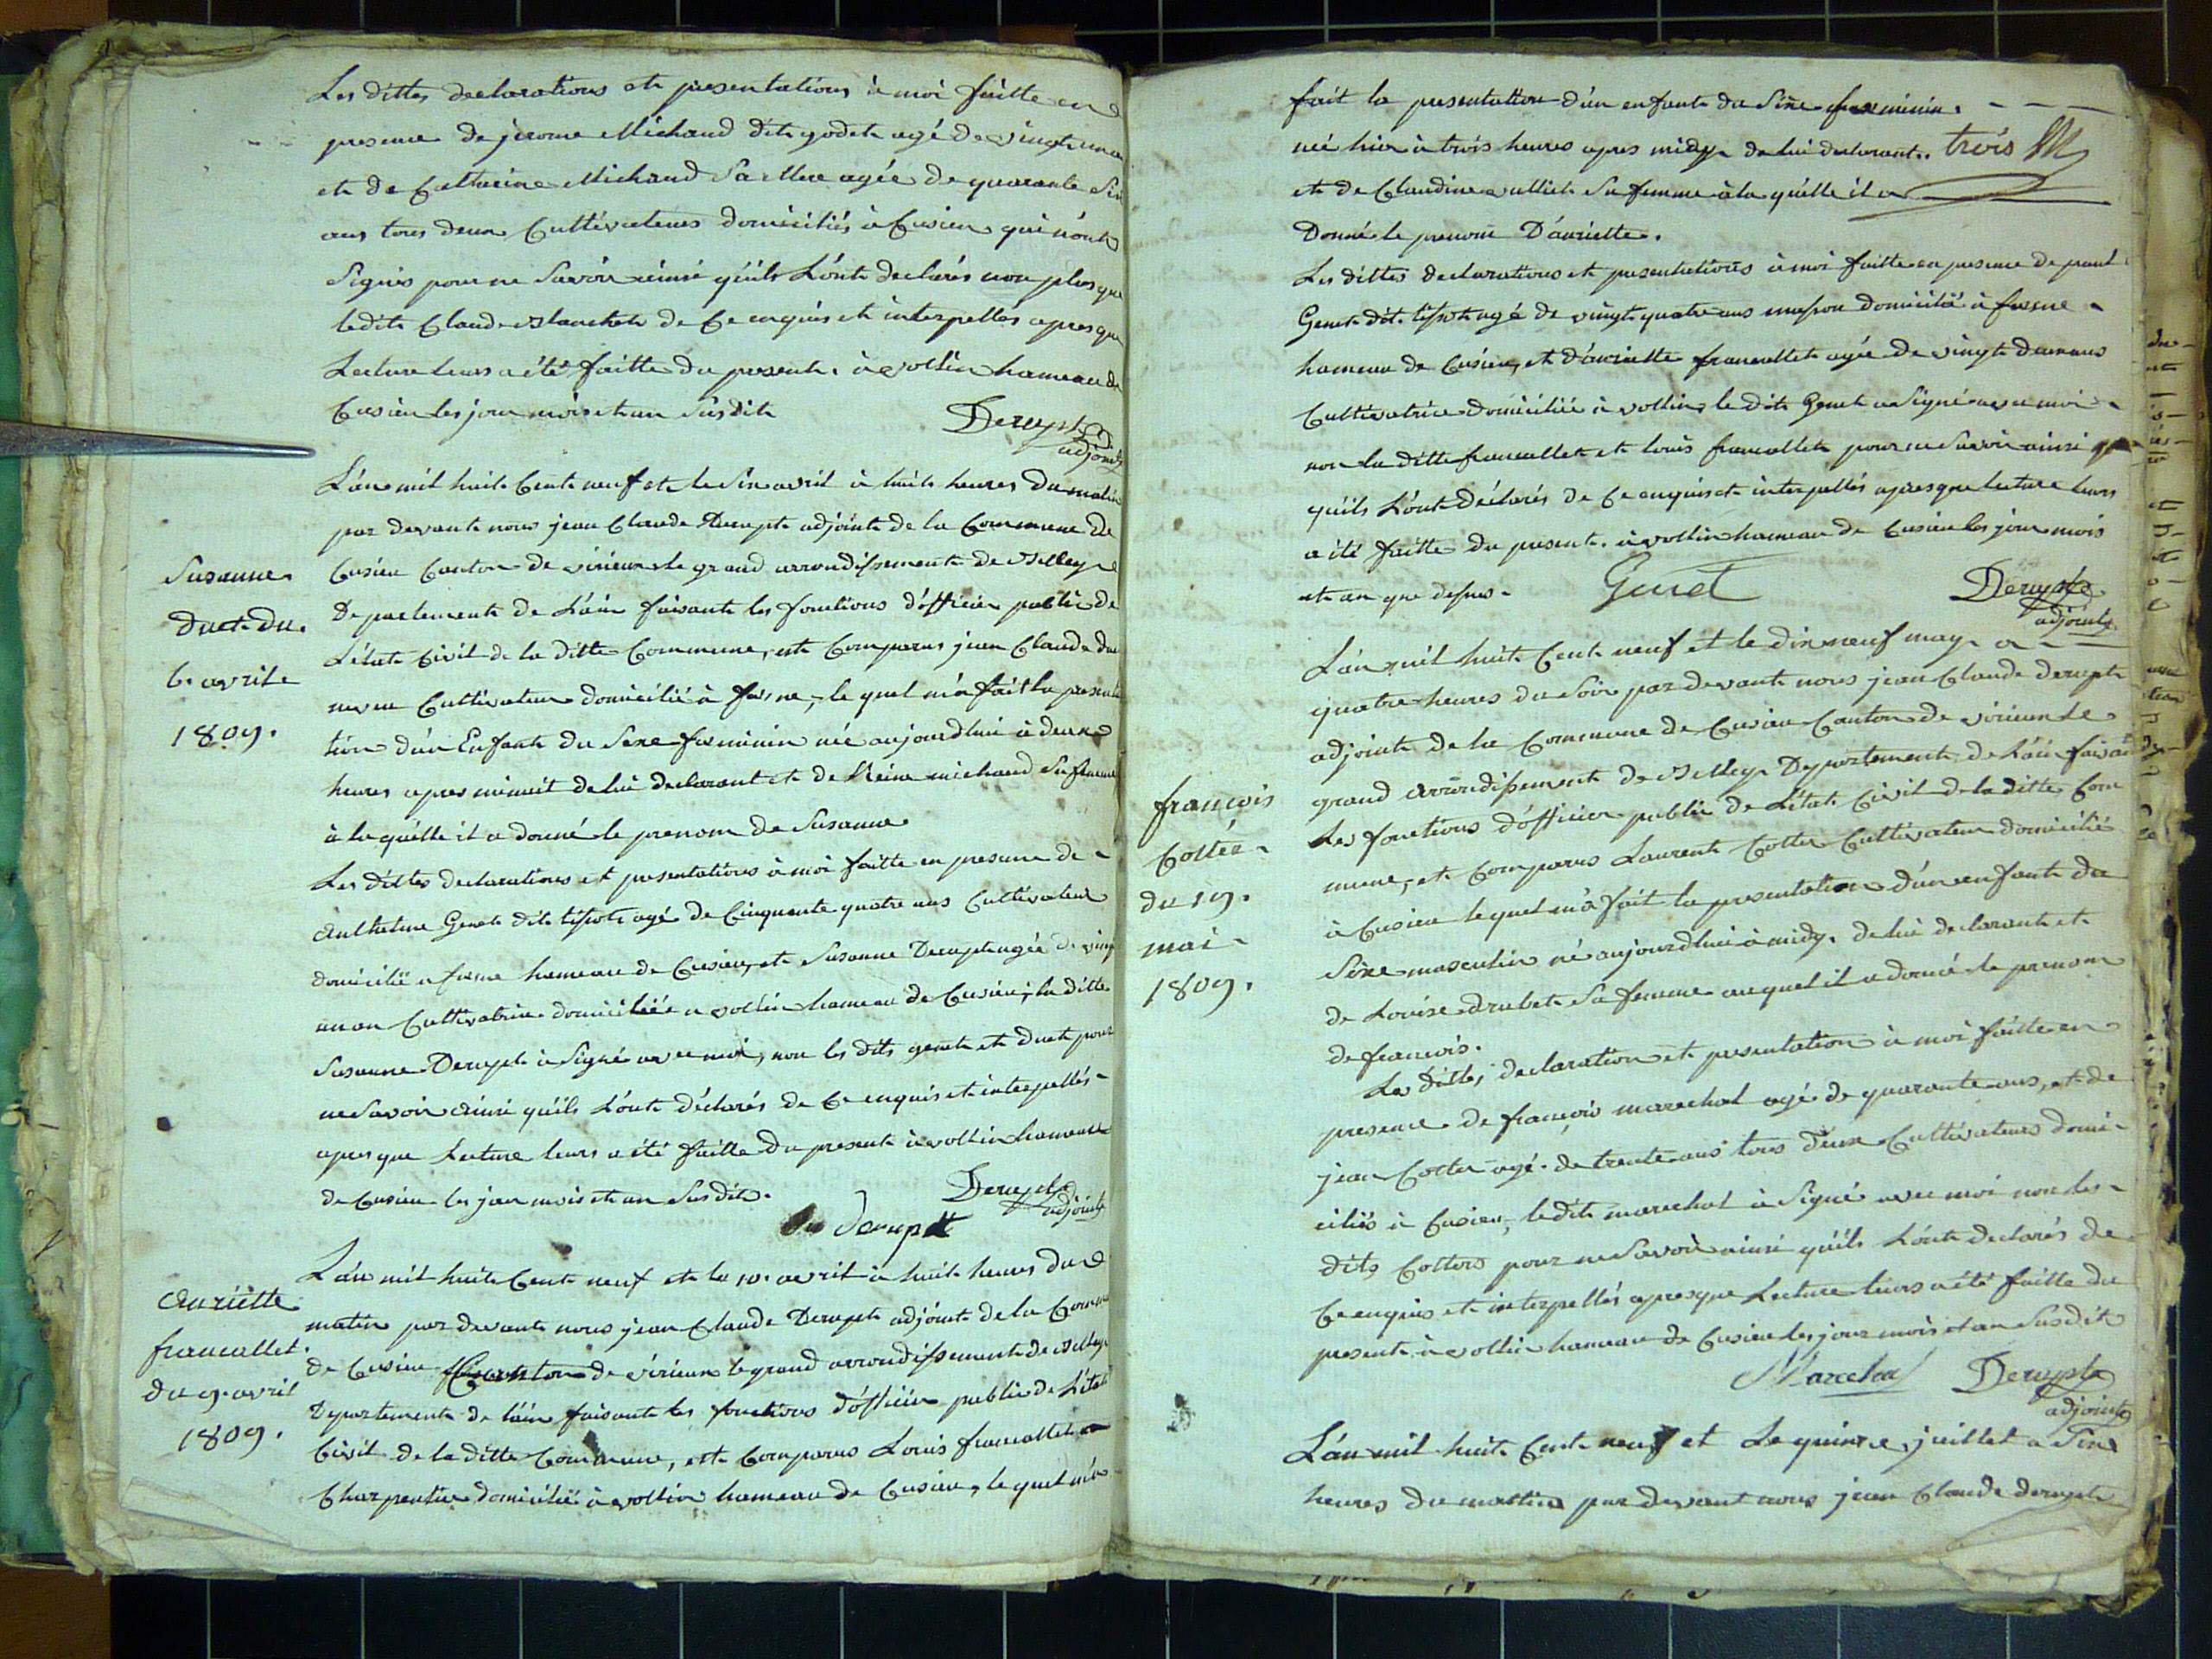 Les dittes declarations et presentations à moi faitte en
presence de jerome Michaud dit godet agé de vingt un
et de Catherine Michaud sa Mere agée de quarante six
ans tous deux Cultivateurs domiciliés à Cusieu qui n'ont
Signés pour ne savoir ainsi qu'ils L'ont declarés non plus que
ledit Claude Blanchet de Ce enquis et interpellés apres que
Lecture leurs a été faitte du present. à vollin hameau de
Cusieu les jour mois et an susdit
Derupt
adjoint
Susanne
duet du
6. avril
1809.
L'an mil huit Cent neuf et le six avril à huit heures du matin
par devant nous jean Claude Derupt adjoint de la Commune de
Cusieu Canton de virieux le grand arrondissement de Belley
Departement de L'ain faisant les fonctions d'officier public de
L'état Civil de la ditte Commune, est Comparus jean Claude duet
Cultivateur domicilié à fasne, le quel m'a fait la presenta
tion d'un Enfant du Sexe feminin née aujourdhui à deux
heures apres minuit de lui declarant et de Reine michaud sa femme
à la quelle il a donné le prenom de Susanne
Les dittes declarations et presentations à moi faitte en presence de
Anthelme Genet dit tissot agé de Cinquante quatre ans Cultivateur
domicilié a fasne hameau de Cusieu, et Susanne Derupt agée de vingt
un an Cultivatrice domiciliée a vollin hameau de Cusieu, la ditte
Susanne Derupt à Signé avec moi, non les dits genet et duet pour
ne Savoir ainsi qu'ils L'ont déclarés de Ce enquis et interpellés
apres que Lecture leurs a été faitte du present à vollin hameau
de Cusieu les jour mois et an Susdit.
Derupt
adjoint
Su derupt
Auriette
francallet.
du 9. avril
1809.
L'an mil huit Cent neuf et le 10. avril à huit heures du
matin par devant nous jean Claude Derupt adjoint de la Commu
de Cusieu Canton de virieux le grand arrondissement de Belley
Departement de l'ain faisant les fonctions d'officier public de L'état
Civil de la ditte Commune, est Comparus Louis francallet
Charpentier domicilié à vollin hameau de Cusieu, le quel m'a
fait la presentation d'un enfant du Sexe feminin.
née hier à trois heures apres midy de lui declarant. trois
et de Claudine sa femme à la quelle il a
Donné le prenom D'auriette.
Les dittes declarations et presentations à moi faitte en presence de paul
Genet dit tissot agé de vingt quatre ans masson domicilié à fasne
hameau de Cusieu, et d'auriette francallet agée de vingt deux ans
Cultivatrice domiciliée à vollin, le dit Genet a Signé avec moi
non la ditte francallet et louis francallet pour ne Savoir ainsi
qu'ils L'ont déclarés de Ce enquis et interpellés apres que lecture leurs
a été faitte du present. à vollin hameau de Cusieu les jour mois
et an que dessus.
Genet
Derupt
adjoint
francois
Cotter
du 19.
mai
1809.
L'an mil huit Cent neuf et le dix neuf may a
quatre heures du Soir par devant nous jean Claude derupt
adjoint de la Commune de Cusieu Canton de virieux le
grand arrondissement de Belley Departement de L'ain faisant
Les fonctions d'officier public de L'état Civil de la ditte Com
mune, est Comparus Laurent Cotter Cultivateur domicilié
à Cusieu lequel m'a fait la presentation d'un enfant du
Sexe masculin né aujourd'hui à midy. de lui declarant et
de Louise drubet Sa femme auquel il a donné le prenom
de francois.
Les dittes declaration et presentation à moi faitte en
presence de françois marechal agé de quarante ans, et de
jean Cotter agé de trente ans tous deux Cultivateurs domi-
ciliés à Cusieu, le dit marechal à Signé avec moi non les
dits Cotters pour ne Savoir ainsi qu'ils L'ont declarés de
Ce enquis et interpellés apres que Lecture leurs a été faitte du
present à vollin hameau de Cusieu les jour mois et an Susdit
Marechal
Derupt
adjoint
L'an mil huit Cent neuf et Le quinze juillet a Six
heures du matin par devant nous jean Claude derupt